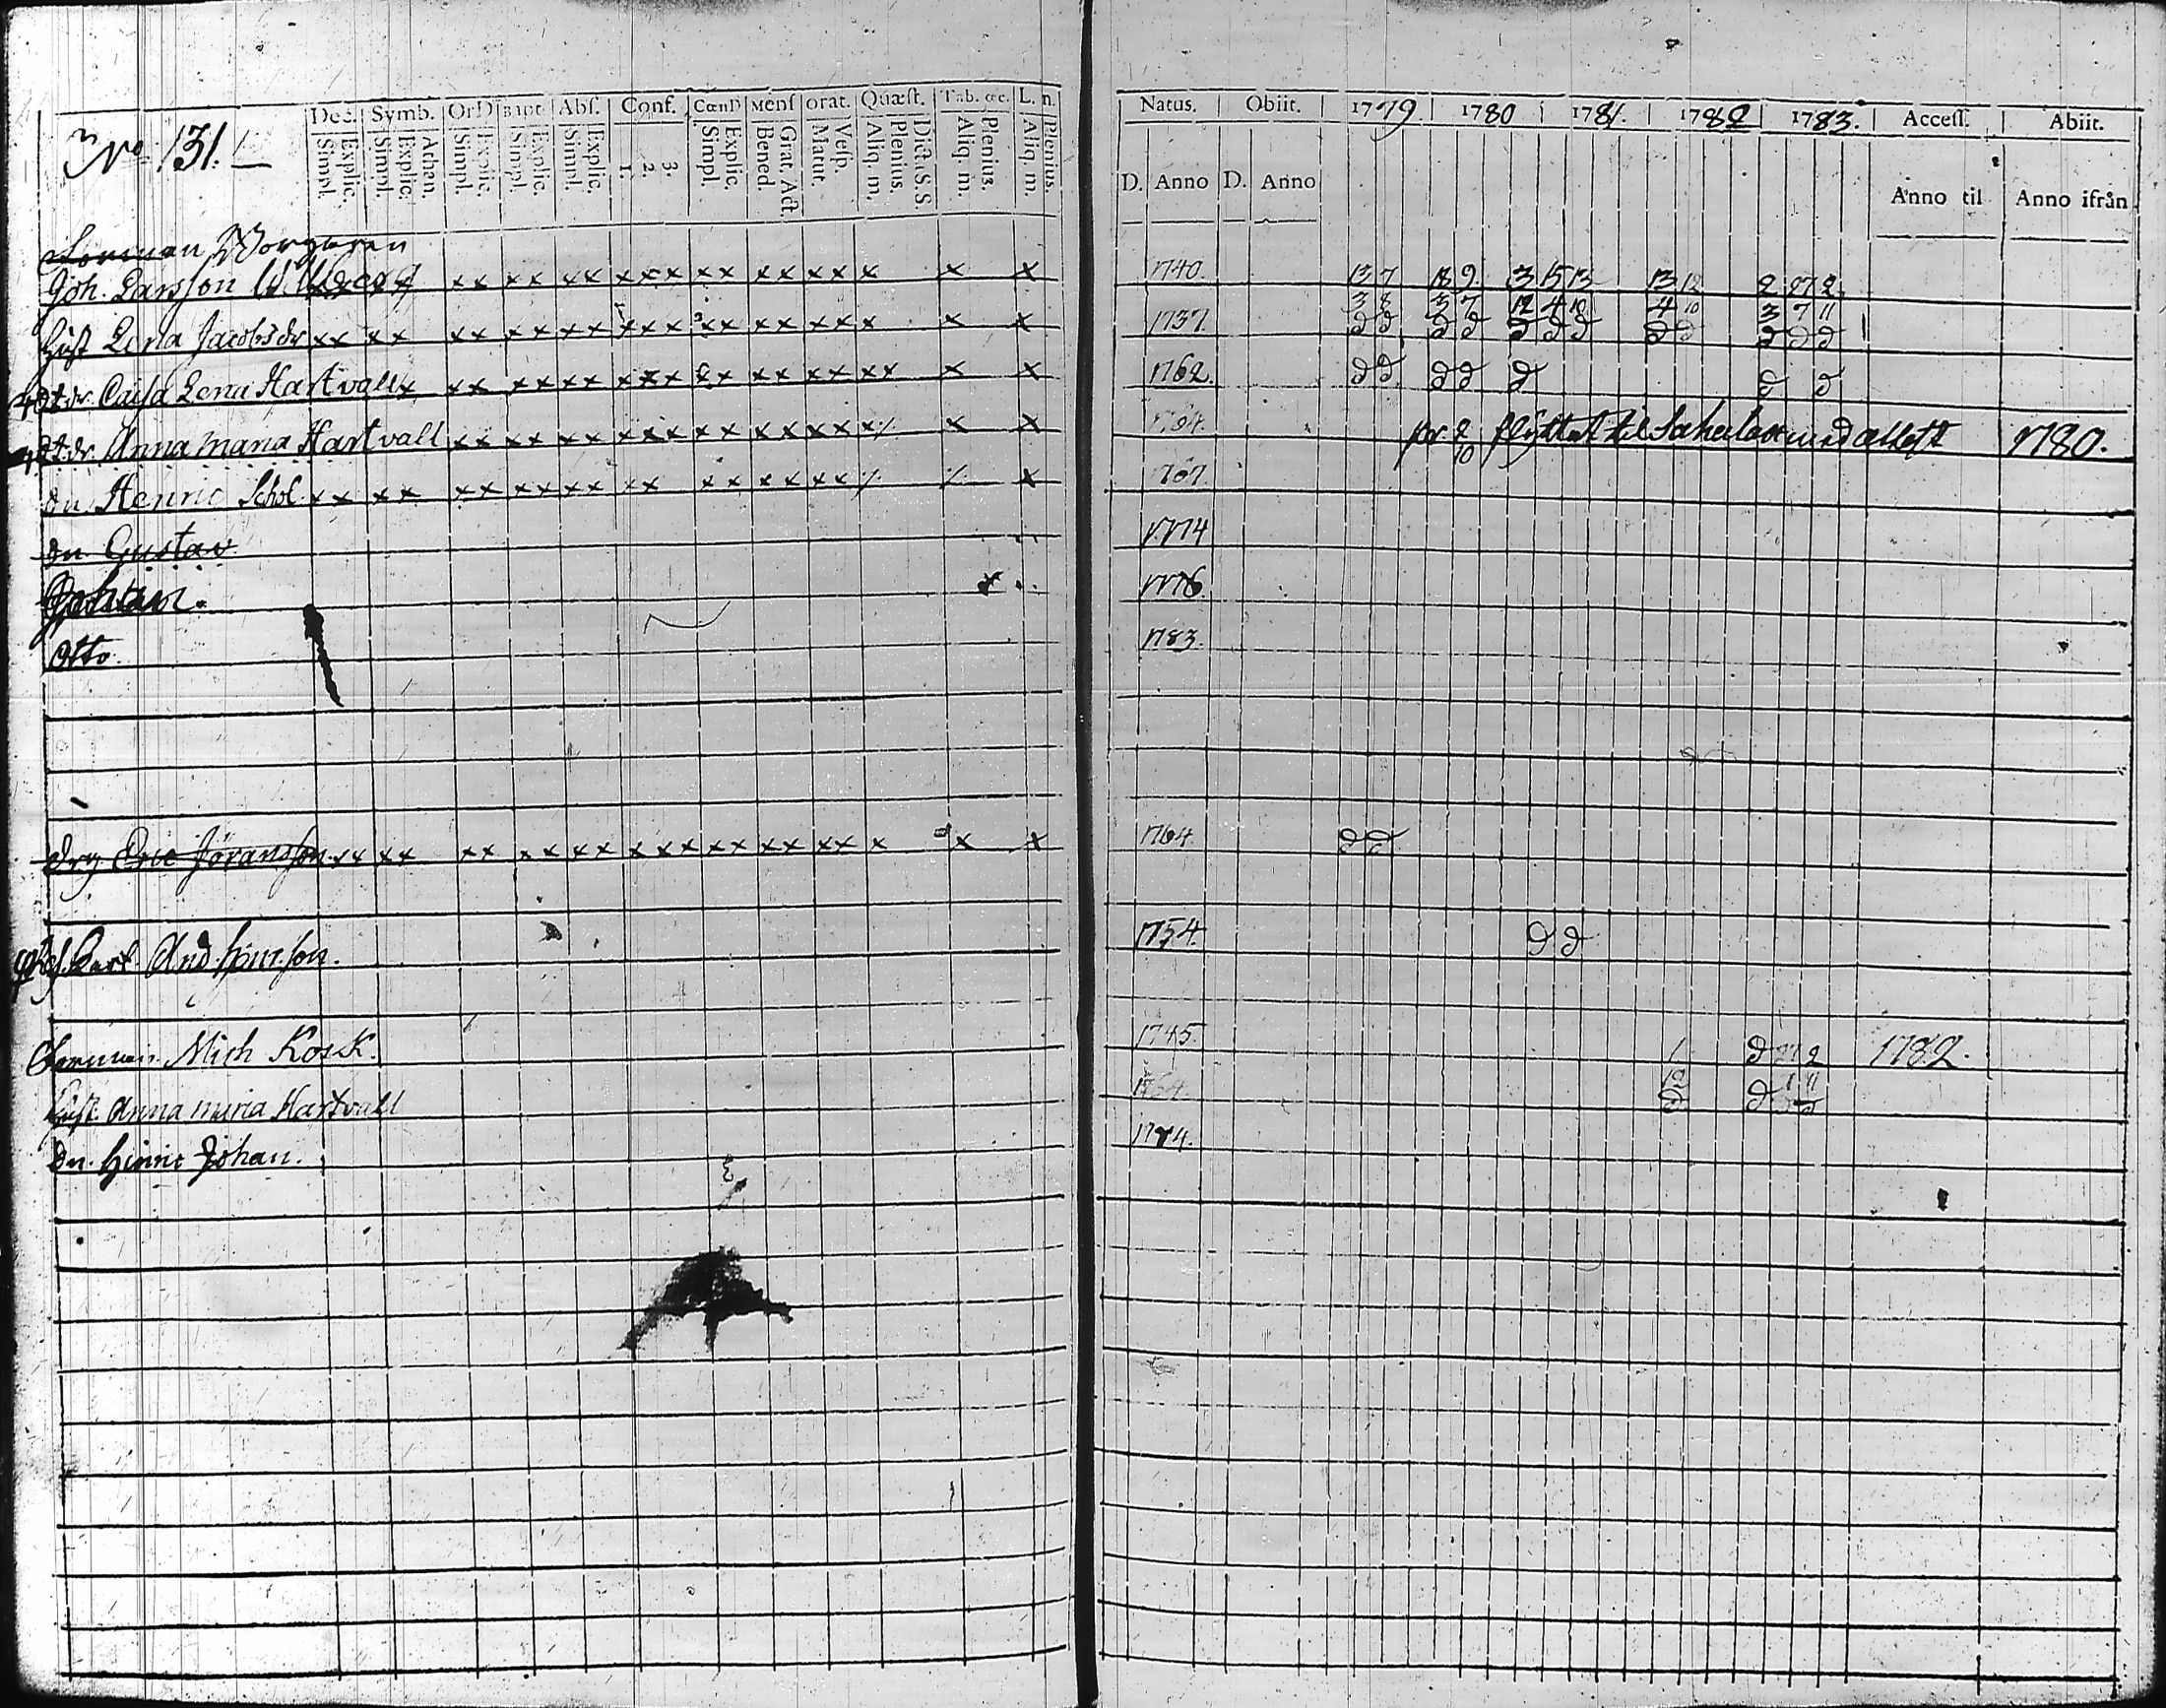 No 131.
Dec. Symb. OrD Bapt. Abſ. Conf. CœnD Menſ orat. Quæſt. Tab. &c. L. n. Natus. Obiit. 1779. 1780 1781. 1782 1783. Acceſſ. Abiit.
Simpl. Explic. Simpl. Explic. Athan. Simpl. Explic. Simpl. Explic. Simpl. Explic. 1. 2. 3. Simpl. Explic. Bened. Grat. Act. Matut. Veſp. Aliq. m. Plenius. Dict. S. S. Aliq. m. Plenius. Aliq. m. Plenius. D. Anno D. Anno Anno til Anno ifrån
Borgaren
Joh. Larsson x x x x x x x x x x x x x x x x x x x 1740. 13 7 18 9 3 15 13 13 12 2 27 2
Hust Lena Jacobsdr x x x x x x x x x x x x x x x x x x x x x x 1737. 3 8 3 7 12 4 10 4 10 3 7 11
dr Caisa Lena Hartvall x x x x x x x x x x x x x x x x x x x x 1762.
dr Anna Maria Hartvall x x x x x x x x x x x x x x x x x x 1764. flyttat til med attest 1780.
dn. Henric Schol. x x x x x x x x x x x x x x x x x x x 1767.
dn Gustav 1774
Johan. 1776.
Otto. 1783.
Drg Eric Jöransson x x x x x x x x x x x x x x x x x x x x x x 1764.
And. 1754.
Mich Kosk. 1745. 1 27 2 1782.
Hust. Anna Maria Hartvall 1764. 12 1 11
Dn. Hinric Johan. 1774.